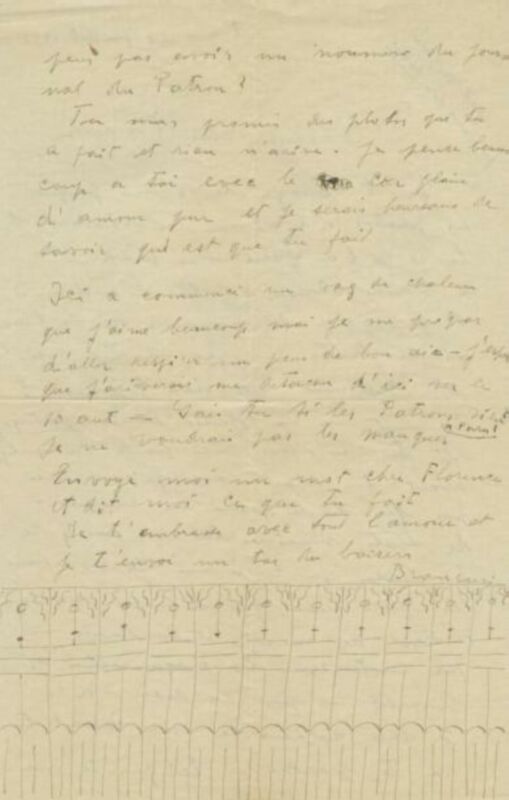 peus pas avoir un noumero du jour
nal du Patron?
Tou mas promis des photos que tu
a fait et rien n'arive. Je pense beau
coup a toi avec le cor plain
d'amour pur et je serais heureux de
savoir qui est que tu fait
Ici a commencé un vag de chaleur
que j'aime beaucoup moi je me prepar
d'aller respirer un peu de bon air – j'esp
que j'ariverai me d'ici vers le
10 aut – Sais tu si les Patrons
a Paris?
Je ne voudrais pas les manquer
Envoye moi un mot cher Florence
et dit moi ce que tu fait
Je t'embrasse avec tout l'amour et
Je t'envoi un tas de baisers
Brancusi